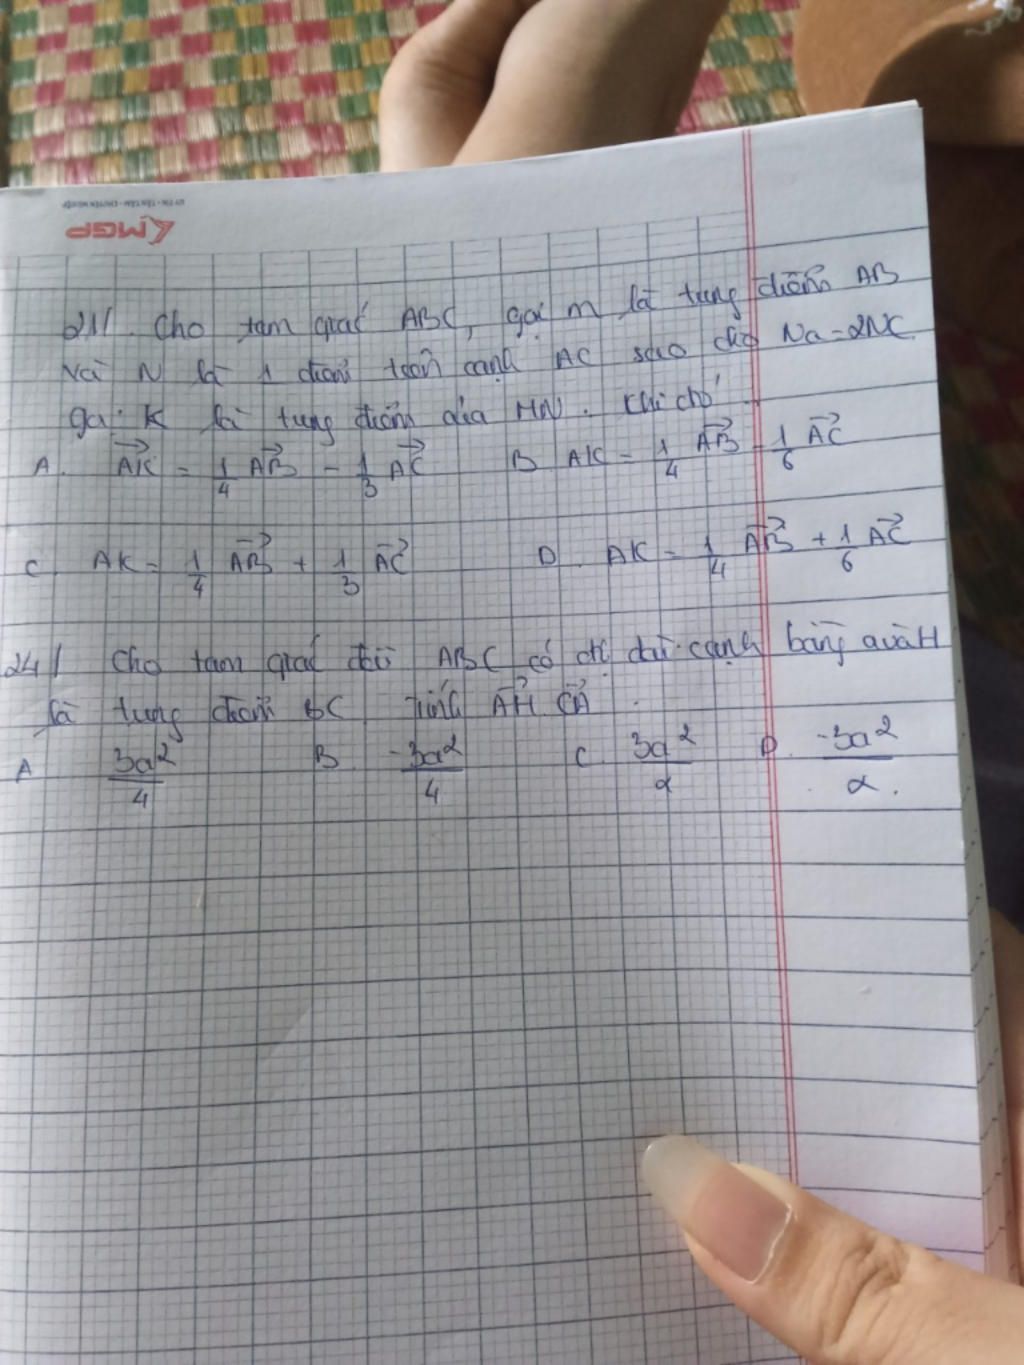 UY TÍN - TẬN TÂM - CHUYÊN NGHIỆP
MGP
21/. Cho tam giác ABC, gọi M là trung điểm AB
và N là 1 điểm trên cạnh AC sao cho Na = 2NC.
gọi K là trung điểm của MN. Khi chó
A. \vec{AK} = 1/4 \vec{AB} - 1/3 \vec{AC} B AK = 1/4 \vec{AB} - 1/6 \vec{AC}
C. AK = 1/4 \vec{AB} + 1/3 \vec{AC} D. AK = 1/4 \vec{AB} + 1/6 \vec{AC}
24/ Cho tam giác đều ABC có độ dài cạnh bằng a và H
là trung điểm BC Tính \vec{AH} \vec{CA}.
A 3a²/4 B. -3a²/4 C. 3a²/2 D. -3a²/2.